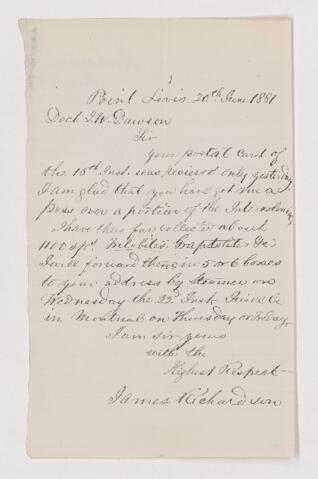 Point Livis 20th June 1881
Doct J.W. Dawson
Sir
Your postal card of
the 16th Inst. was recieved only yesterday
I am glad that you have got me a
pass over a portion of the Intercolonial
I have thus far collected about
1100 spc. Trilobites Graptolites &c
I will forward them in 5 or 6 boxes
to your address by Steamer on
Wednesday the 22d Inst.
in Montreal on Thursday or Friday
I am sir yours
with the
Highest Respect
James Richardson